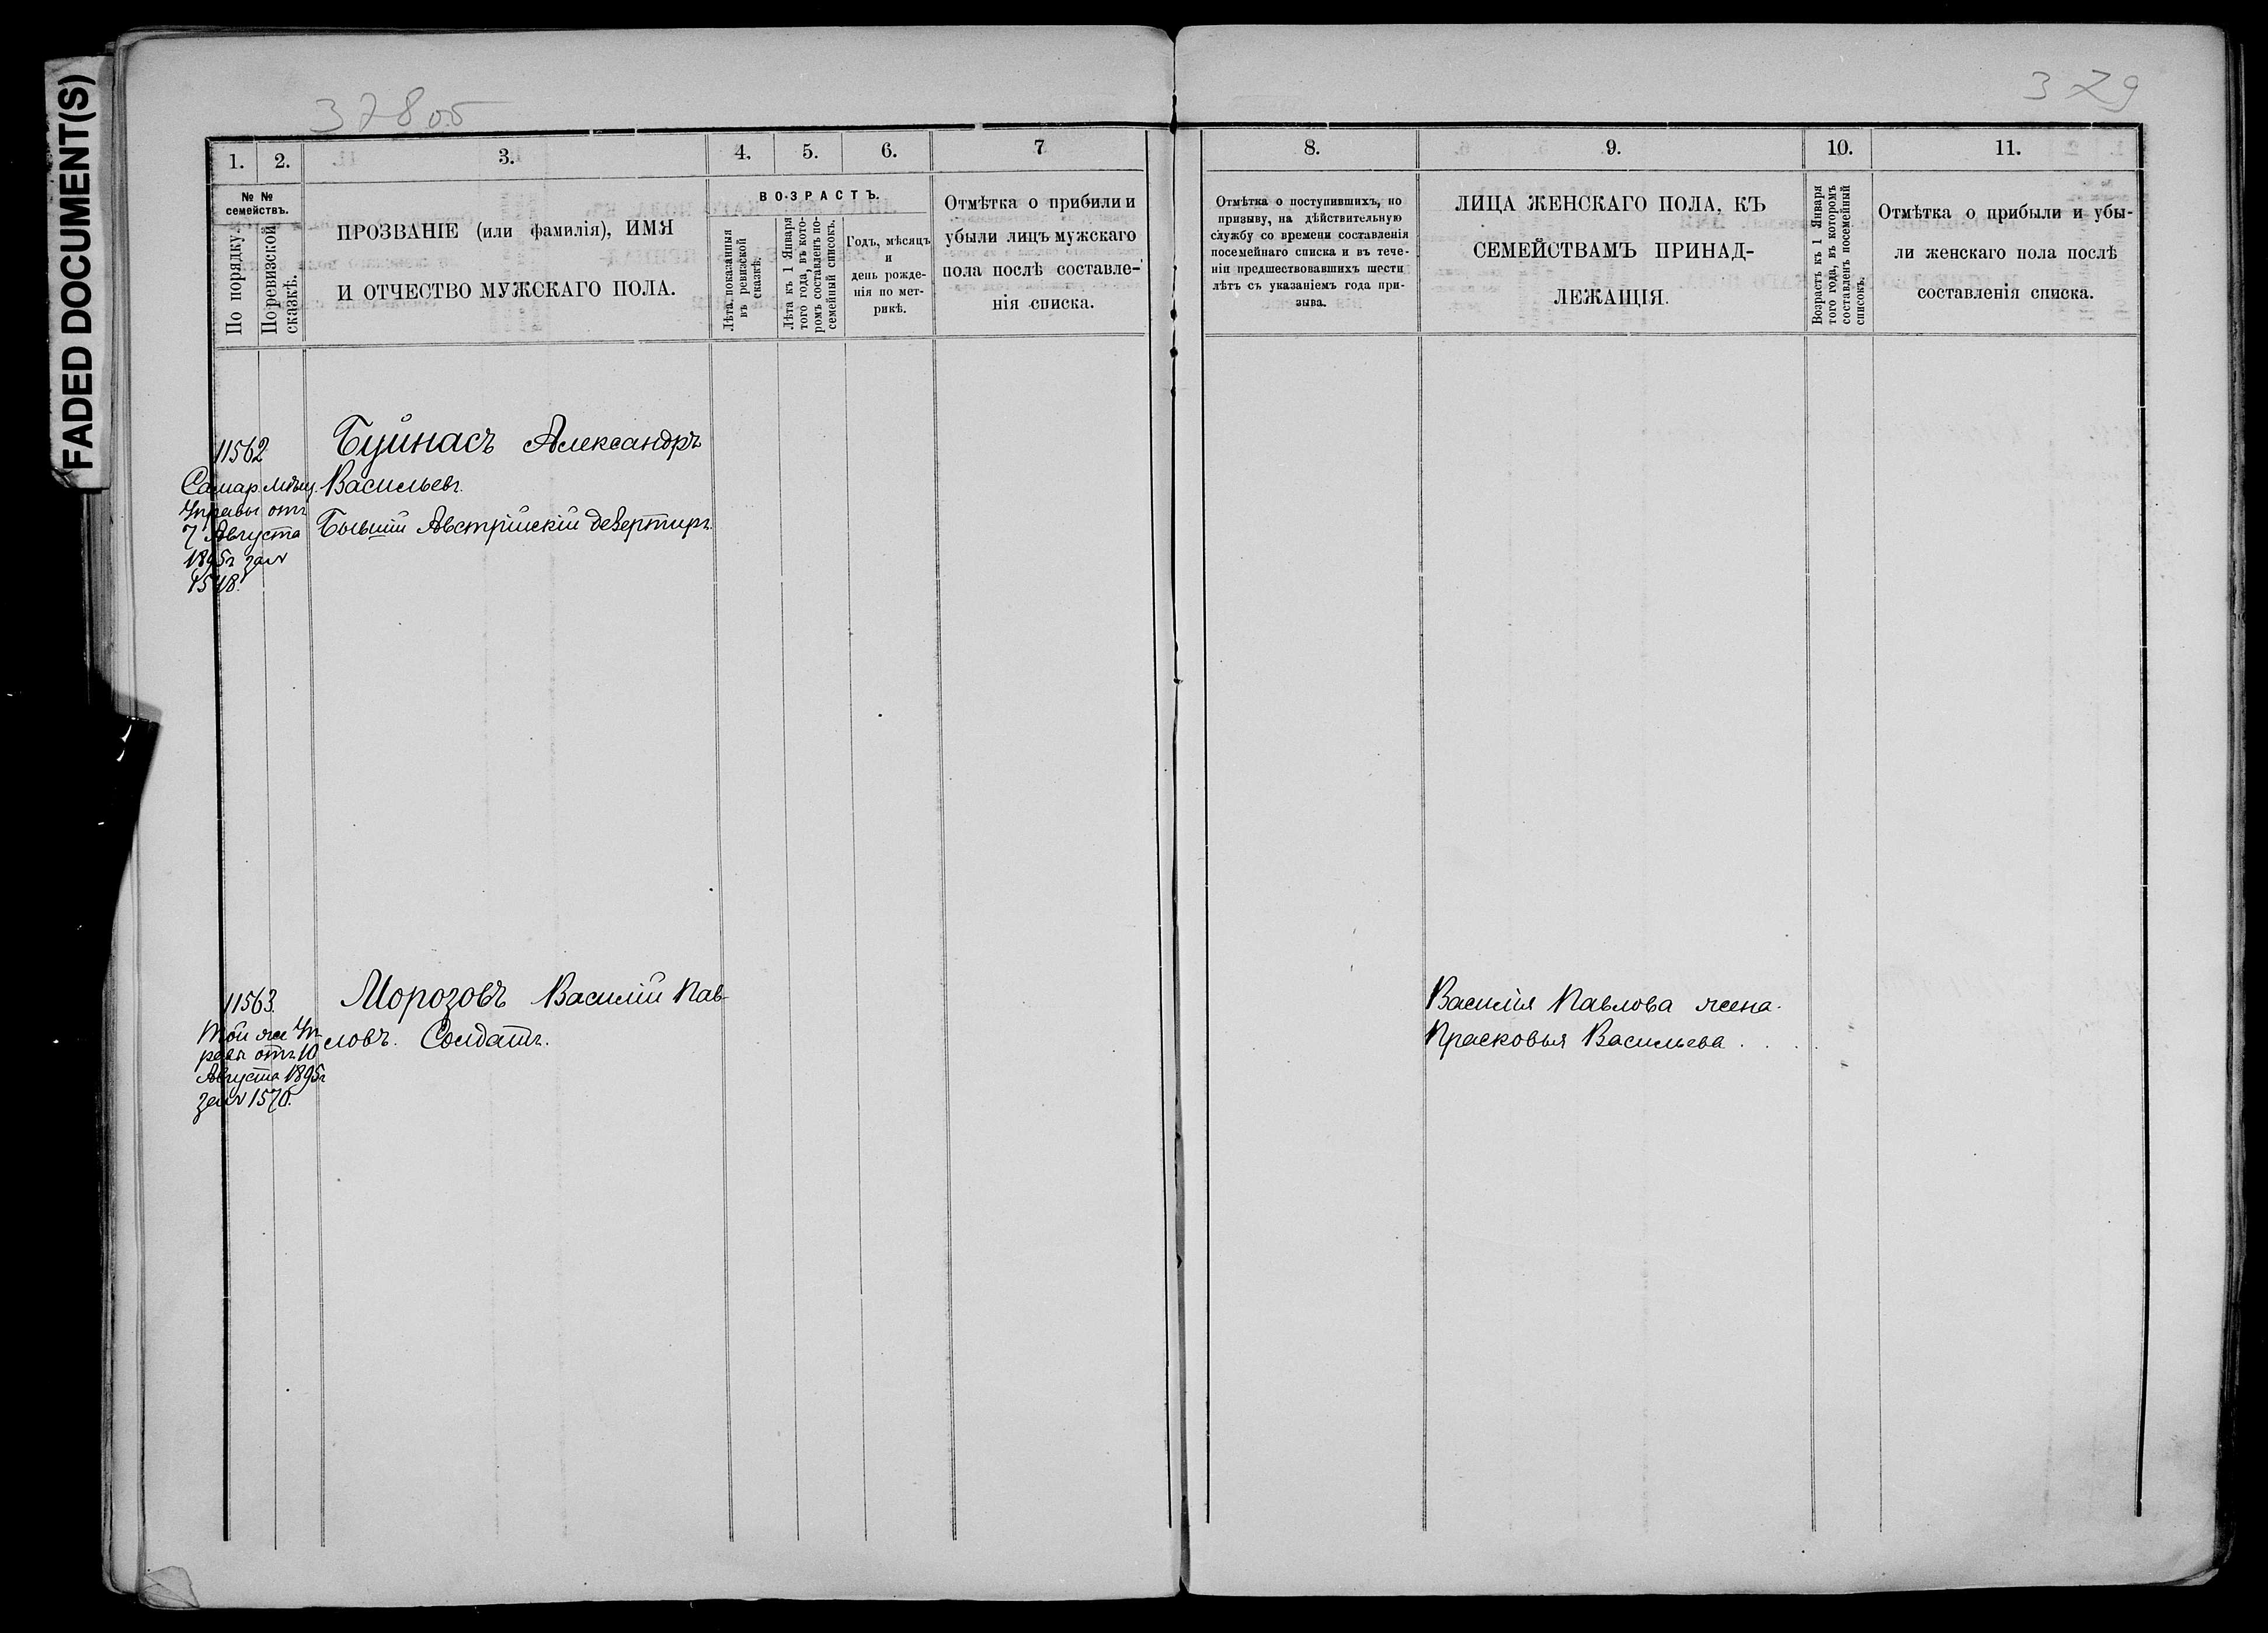 FADED DOCUMENT(S)
378 об
379
1. 2. 3. 4. 5. 6. 7
№ № семействъ.
По порядку.
По ревизской сказкѣ.
ПРОЗВАНІЕ (или фамилія), ИМЯ
И ОТЧЕСТВО МУЖСКАГО ПОЛА.
ВОЗРАСТЪ.
Лѣта, показанныя
въ ревизской
сказкѣ.
Лѣта къ 1 Января
того года, въ кото-
ромъ составленъ по-
семейный списокъ.
Годъ, мѣсяцъ
и
день рожде-
нія по мет-
рикѣ.
Отмѣтка о прибили и
убыли лицъ мужскаго
пола послѣ составле-
нія списка.
11562
Самар. Мѣщ.
Управы отъ
7 Августа
1895г за №
1548.
Буйнасъ Александръ
Васильевъ.
Бывшій Австрійскій дезертиръ.
11563.
Той же Уп-
равы отъ 10
Августа 1895г
за № 1570.
Морозовъ Василій Пав-
ловъ. Солдатъ.
8. 9. 10. 11.
Отмѣтка о поступившихъ, по
призыву, на дѣйствительную
службу со времени составленія
посемейнаго списка и въ тече-
ніи предшествовавшихъ шести
лѣтъ съ указаніемъ года при-
зыва.
ЛИЦА ЖЕНСКАГО ПОЛА, КЪ
СЕМЕЙСТВАМЪ ПРИНАД-
ЛЕЖАЩІЯ.
Возрастъ къ 1 Января
того года, въ которомъ
составленъ посемейный
списокъ.
Отмѣтка о прибыли и убы-
ли женскаго пола послѣ
составленія списка.
Василія Павлова жена.
Прасковья Васильева . . . .